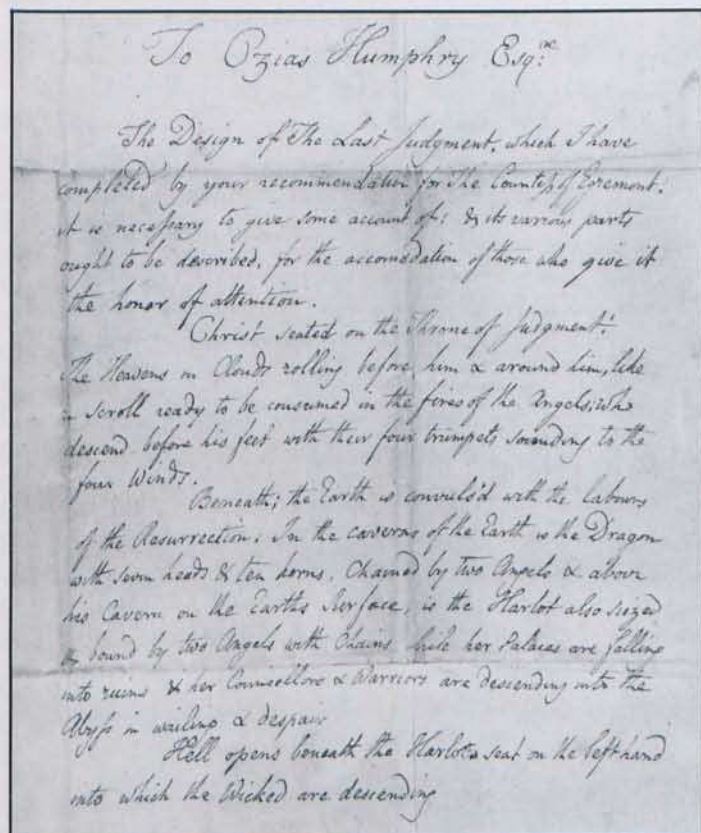 To Ozias Humphry Esqre
The Design of The Last Judgment, which I have
completed by your recommendation for The Countess of Egremont:
it is necessary to give some account of: & its various parts
ought to be described, for the accomodation of those who give it
the honor of attention.
Christ seated on the Throne of Judgment:
The Heavens in Clouds rolling before him & around him, like
a scroll ready to be consumed in the fires of the Angels; who
descend before his feet with their four trumpets sounding to the
four Winds.
Beneath; the Earth is convuls'd with the labours
of the Resurrection. In the caverns of the Earth is the Dragon
with seven heads & ten horns, Chained by two Angels & above
his Cavern on the Earths Surface, is the Harlot also siezed
& bound by two Angels with Chains while her Palaces are falling
into ruins & her Councellors & Warriors are descending into the
Abyss in wailing & despair
Hell opens beneath the Harlots seat on the left hand
into which the Wicked are descending